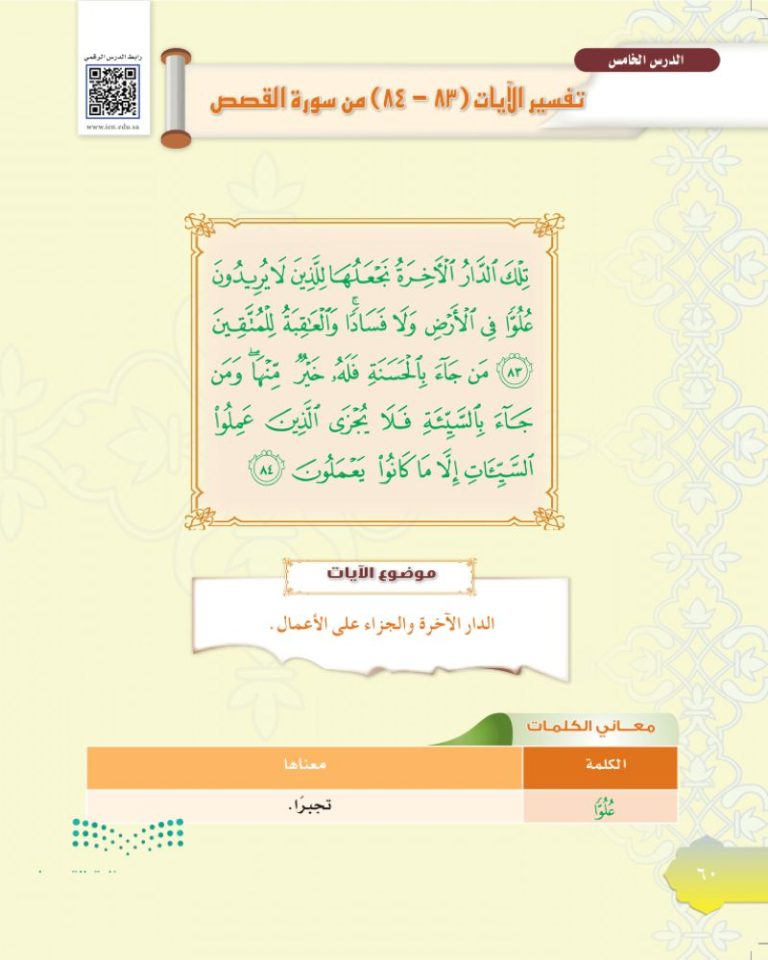 رابط الدرس الرقمي
www.ien.edu.sa
الدرس الخامس
تفسير الآيات (٨٣ – ٨٤) من سورة القصص
تِلْكَ ٱلدَّارُ ٱلْأَخِرَةُ نَجْعَلُهَا لِلَّذِينَ لَا يُرِيدُونَ
عُلُوًّا فِى ٱلْأَرْضِ وَلَا فَسَادًا ۚ وَٱلْعَٰقِبَةُ لِلْمُتَّقِينَ
٨٣ مَن جَآءَ بِٱلْحَسَنَةِ فَلَهُۥ خَيْرٌ مِّنْهَا ۖ وَمَن
جَآءَ بِٱلسَّيِّئَةِ فَلَا يُجْزَى ٱلَّذِينَ عَمِلُوا۟
ٱلسَّيِّـَٔاتِ إِلَّا مَا كَانُوا۟ يَعْمَلُونَ ٨٤
موضوع الآيات
الدار الآخرة والجزاء على الأعمال.
معــاني الكلمات
الكلمة معناها
عُلُوًّا تجبرًا.
٦٠